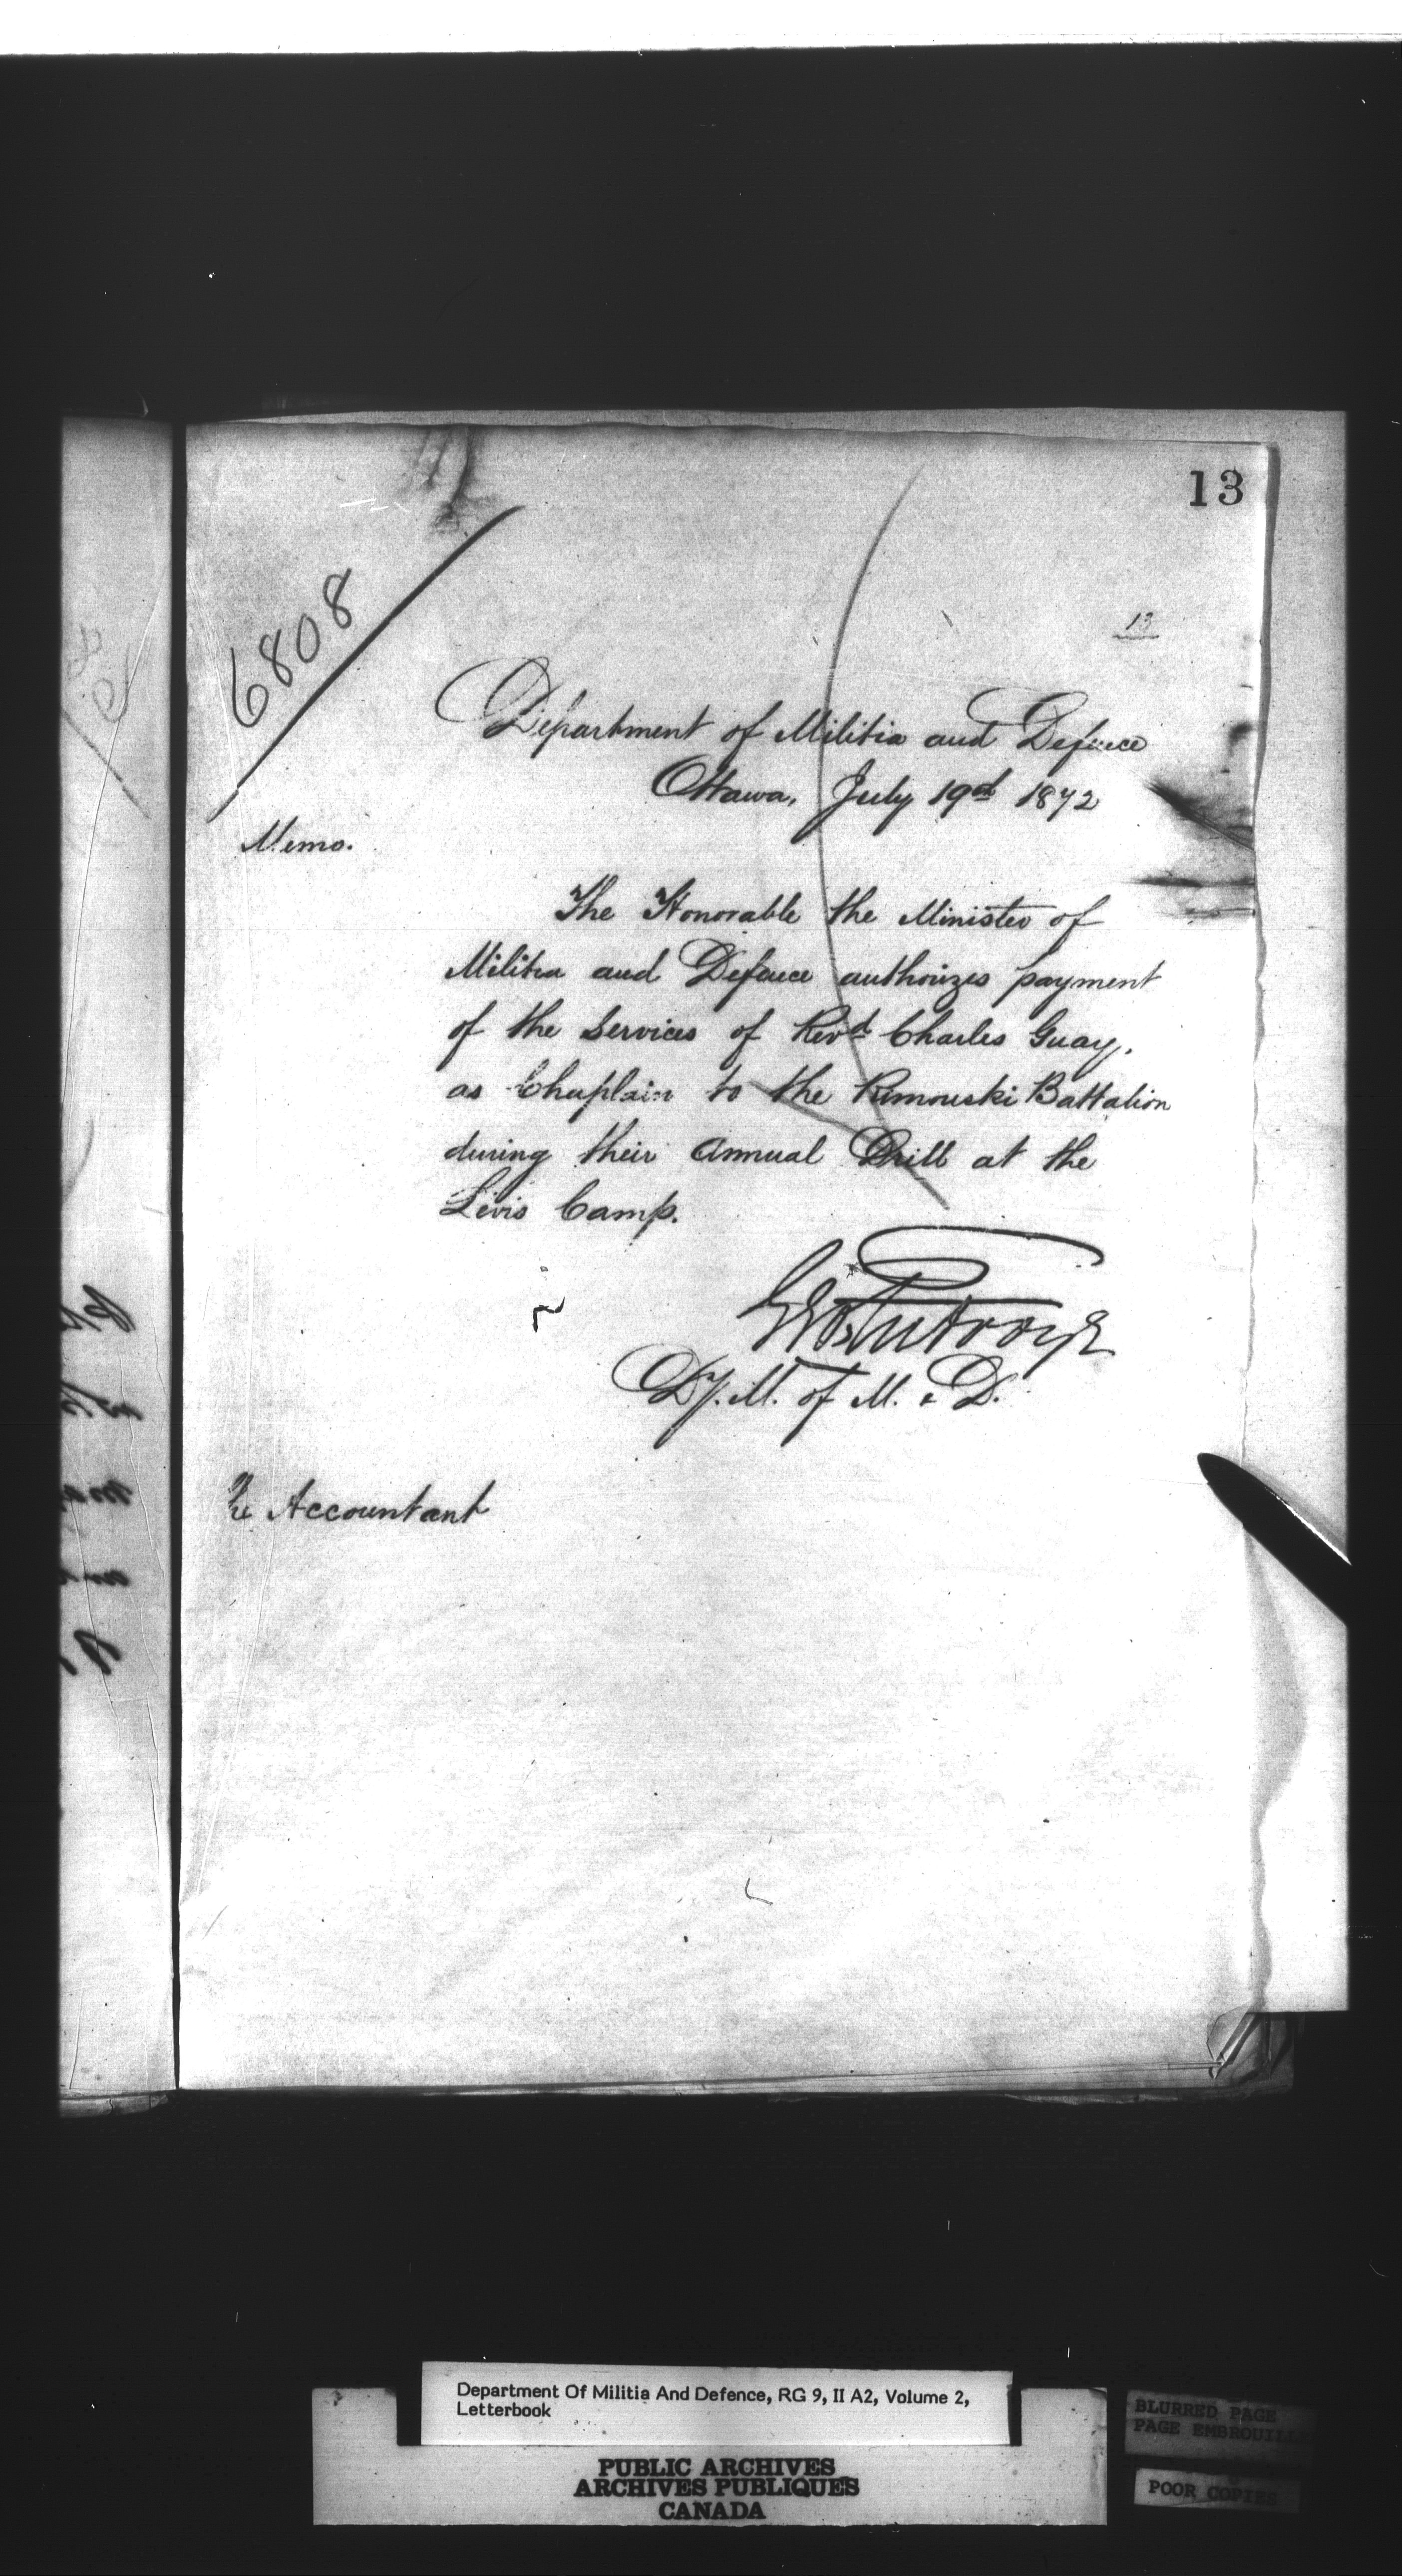 13
6808
13
Department of Militia and Defence
Ottawa, July 19th 1872
Memo.
The Honorable the Minister of
Militia and Defence authorizes payment
of the Services of Revd Charles Guay,
as Chaplain to the Rimouski Battalion
during their Annual Drill at the
Lévis Camp.
Dy. M. of M. & D.
The Accountant
Department Of Militia And Defence, RG 9, II A2, Volume 2,
Letterbook
PUBLIC ARCHIVES
ARCHIVES PUBLIQUES
CANADA
BLURRED PAGE
PAGE EMBROUILL
POOR COPIES